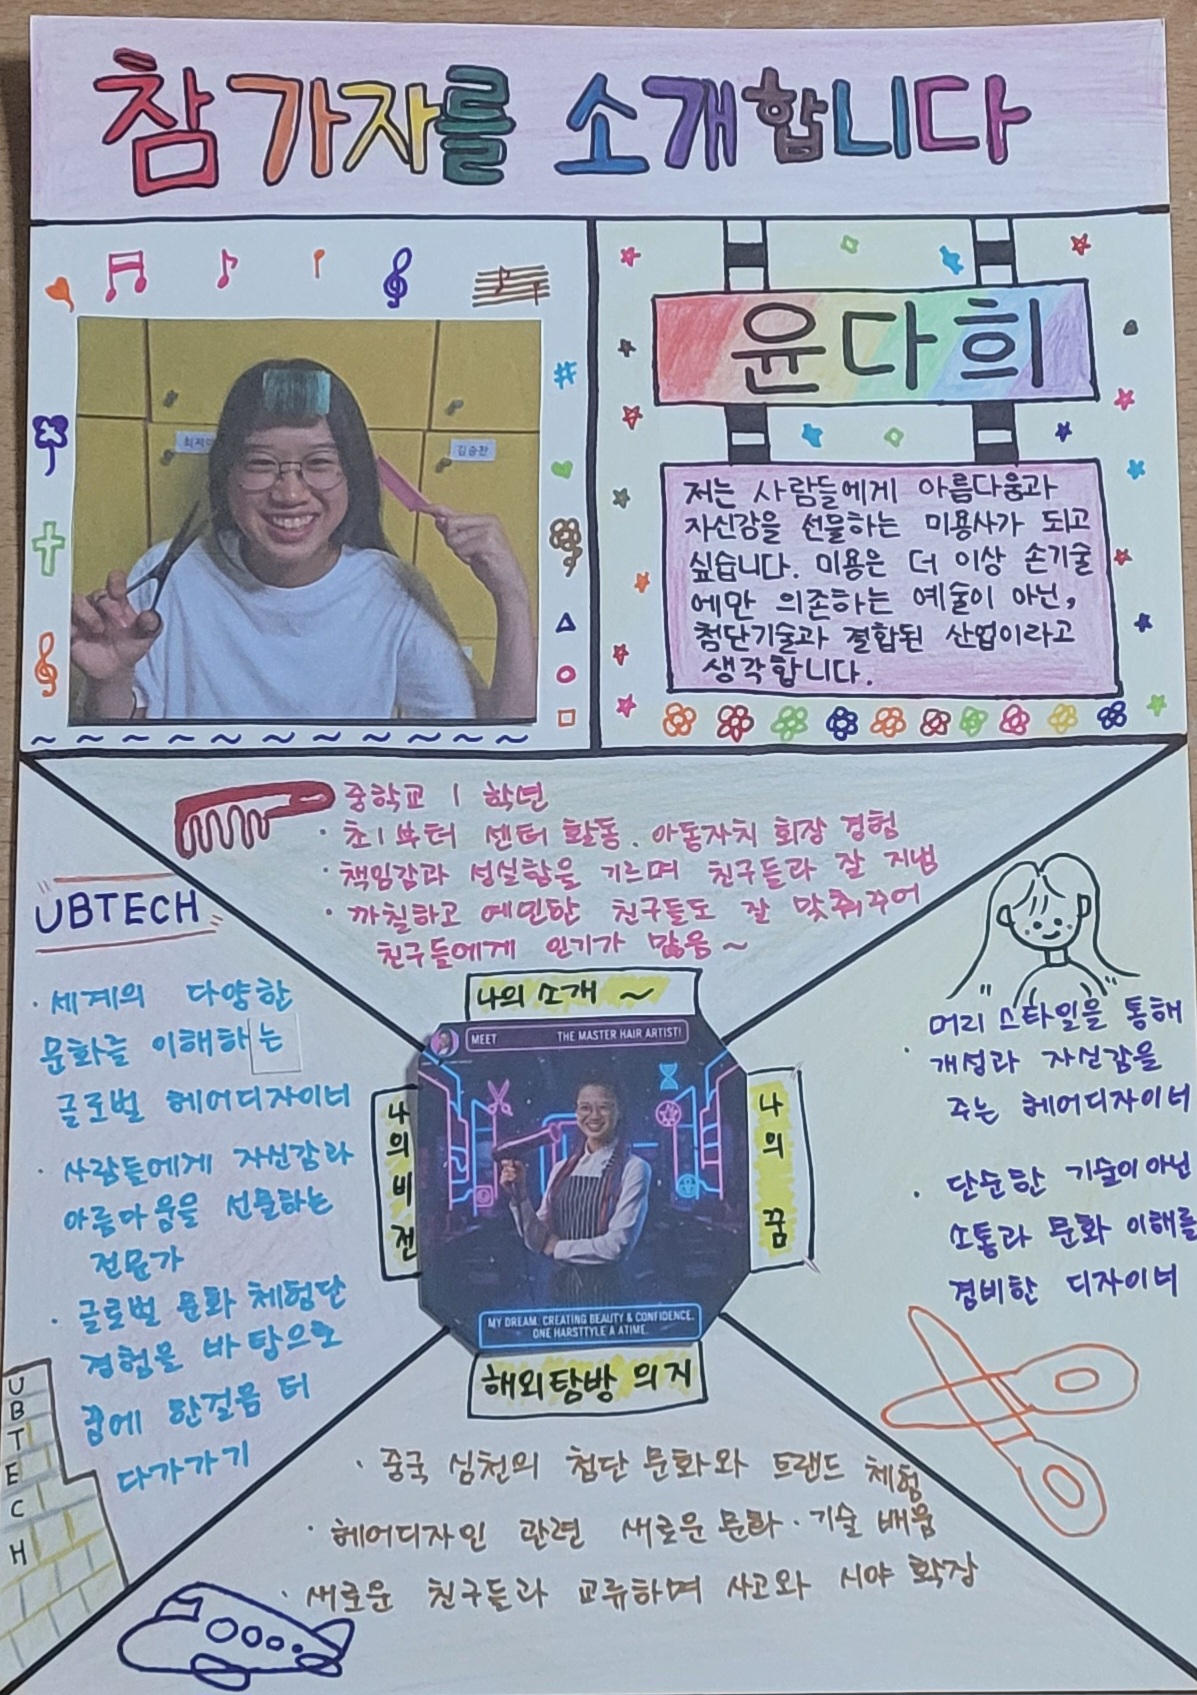 참가자를 소개합니다
최지아
김승찬
윤다희
저는 사람들에게 아름다움과
자신감을 선물하는 미용사가 되고
싶습니다. 미용은 더 이상 손기술
에만 의존하는 예술이 아닌,
첨단기술과 결합된 산업이라고
생각합니다.
중학교 1 학년
· 초1부터 센터 활동. 아동자치 회장 경험
· 책임감과 성실함을 기르며 친구들과 잘 지냄
· 까칠하고 예민한 친구들도 잘 맞춰주어
친구들에게 인기가 많음 ~
나의 소개 ~
UBTECH
· 세계의 다양한
문화를 이해하는
글로벌 헤어디자이너
· 사람들에게 자신감과
아름다움을 선물하는
전문가
· 글로벌 문화 체험단
경험을 바탕으로
꿈에 한걸음 더
다가가기
나의 비전
MEET THE MASTER HAIR ARTIST!
MY DREAM: CREATING BEAUTY & CONFIDENCE.
ONE HARSTTYLE A ATIME.
나의 꿈
머리 스타일을 통해
· 개성과 자신감을
주는 헤어디자이너
· 단순한 기술이 아닌
소통과 문화 이해를
겸비한 디자이너
해외탐방 의지
· 중국 심천의 첨단 문화와 트랜드 체험
· 헤어디자인 관련 새로운 문화·기술 배움
· 새로운 친구들과 교류하며 사고와 시야 확장
UBTECH